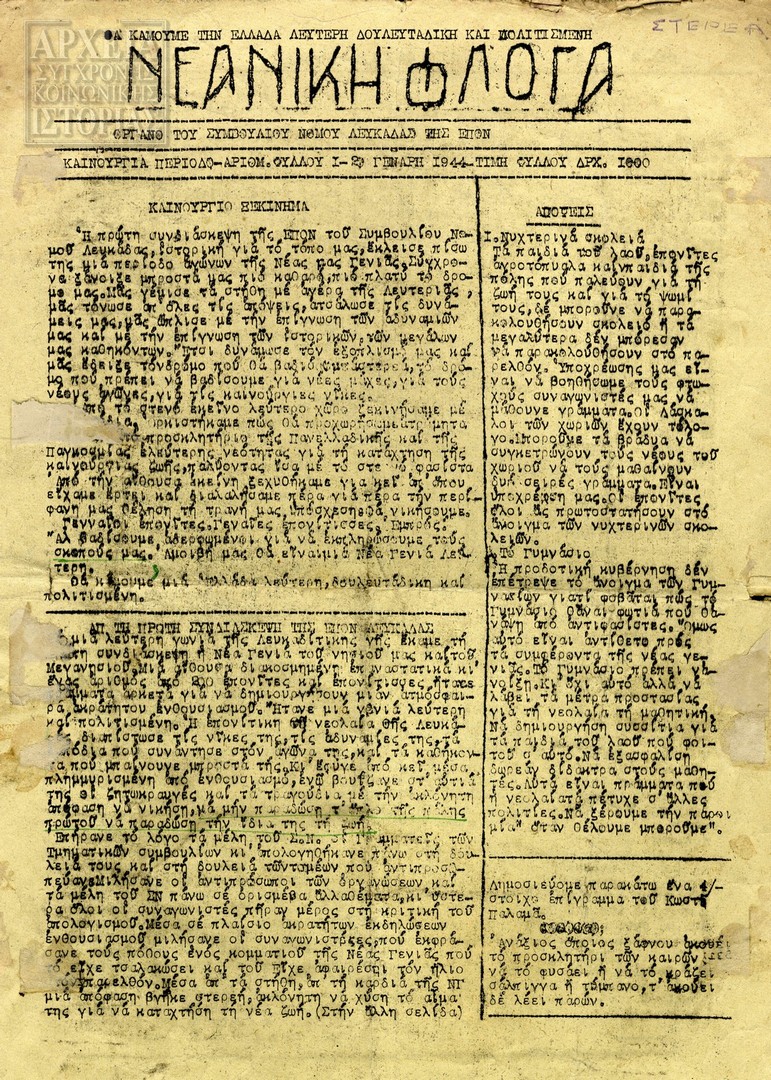 ΘΑ ΚΑΜΟΥΜΕ ΤΗΝ ΕΛΛΑΔΑ ΛΕΥΤΕΡΗ ΔΟΥΛΕΥΤΑΔΙΚΗ ΚΑΙ ΠΟΛΙΤΙΣΜΕΝΗ
ΣΤΕΡΕΑ
ΑΡΧΕΙΑ
ΣΥΓΧΡΟΝΗΣ
ΚΟΙΝΩΝΙΚΗΣ
ΙΣΤΟΡΙΑΣ
ΝΕΑΝΙΚΗ ΦΛΟΓΑ
ΟΡΓΑΝΟ ΤΟΥ ΣΥΜΒΟΥΛΙΟΥ ΝΟΜΟΥ ΛΕΥΚΑΔΑΣ ΤΗΣ ΕΠΟΝ
ΚΑΙΝΟΥΡΓΙΑ ΠΕΡΙΟΔΟ-ΑΡΙΘΜ.ΦΥΛΛΟΥ 1- ΓΕΝΑΡΗ 1944-ΤΙΜΗ ΦΥΛΛΟΥ ΔΡΧ. 1000
ΚΑΙΝΟΥΡΓΙΟ ΞΕΚΙΝΗΜΑ
Ἡ πρώτη συνδιάσκεψη τῆς ΕΠΟΝ τοῦ Συμβουλίου Νο-
μοῦ Λευκάδας, ἱστορική γιά τό τόπο μας, ἔκλεισε πίσω
της μιά περίοδο ἀγώνων τῆς Νέας μας Γενιᾶς. Σύγχρο-
να ξάνοιξε μπροστά μας πιό καθαρό, πιό πλατύ τό δρο-
μο μας. Μᾶς γέμισε τά στήθη μέ ἀγέρα τῆς Λευτεριᾶς,
μᾶς τόνωσε ἀπ' ὅλες τίς ἀπόψεις, ἀτσάλωσε τίς δυνά-
μεις μας, μᾶς ὥπλισε μέ τήν ἐπίγνωση τῶν ἀδυναμιῶν
μας καί μέ τήν ἐπίγνωση τῶν ἱστορικῶν, τῶν μεγάλων
μας καθηκόντων. Ἔτσι δυνάμωσε τόν ἐξοπλισμό μας καί
μᾶς ἔδειξε τόν δρόμο πού θά βαδίσουμε, τό δρό-
μο πού πρέπει νά βαδίσουμε γιά νέες μάχες, γιά τούς
νέους ἀγῶνες, γιά τίς καινούργιες νίκες.
τό στενό ἐκεῖνο λεύτερο χῶρο ξεκινήσαμε μέ
ὁρκιστήκαμε πώς θά προχωρήσωμε
προσκλητήριο τῆς Πανελλαδικῆς καί τῆς
Παγκόσμιας ἐλεύτερης νεότητας γιά τή κατάχτηση τῆς
καινούργιας ζωῆς, παλύοντας ἴσα μέ τό φασίστα
Ἀπό τήν αἴθουσα ἐκείνη ξεχυθήκαμε γιά κεῖ ἀπ' ὅπου
εἴχαμε ἔρτει καί διαλαλήσαμε πέρα γιά πέρα τήν περί-
φανή μας θέληση τή τρανή μας ὑπόσχεση. Θά νικήσουμε.
Γενναῖοι ἐπονῖτες. Γενναῖες ἐπονίτισσες. Ἐμπρός.
Ἄς βαδίσουμε ἀδερφωμένοι γιά νά ἐκπληρώσουμε τούς
σκοπούς μας. Ἀμοιβή μας θά εἶναι μιά Νέα Γενιά Λεύ-
τερη.
Θά κάμουμε μιά Ἑλλάδα λεύτερη, δουλευτάδικη καί
πολιτισμένη.
ΑΠ ΤΗ ΠΡΩΤΗ ΣΥΝΔΙΑΣΚΕΨΗ ΤΗΣ ΕΠΟΝ ΛΕΥΚΑΔΑΣ
μιά λεύτερη γωνιά τῆς Λευκαδίτικης γῆς ἔκαμε τή
συνδιάσκεψη ἡ Νέα Γενιά τοῦ νησιοῦ μας καί τοῦ
Μεγανησιοῦ. Μιά αἴθουσα διακοσμημένη ἐπαναστατικά κι'
ἕνας ἀριθμός ἀπό 200 ἐπονῖτες καί ἐπονίτισσες, ἤτανε
ἀρκετά γιά νά δημιουργήσουν μιάν ἀτμόσφαι-
ρα ἀκράτητου ἐνθουσιασμοῦ. Ἤτανε μιά γωνιά λεύτερη
καί πολιτισμένη. Ἡ ἐπονίτικη νεολαία τῆς Λευκά-
δας διαπίστωσε τίς νίκες της, τίς ἀδυναμίες της, τά
ἐμπόδια πού συνάντησε στόν ἀγῶνα της, καί τά καθήκον-
τα πού μπαίνουνε μπροστά της. Κι' ἔφυγε ἀπό κεῖ μέσα
πλημμυρισμένη ἀπό ἐνθουσιασμό, ἐνῶ βουΐζανε στ' αὐτιά
της οἱ ζητωκραυγές καί τά τραγούδια μέ τήν ἀκλόνητη
ἀπόφαση νά νικήση, μά μήν παραδώση τ' ὅπλο τῆς πάλης
πρωτοῦ νά παραδώση τήν ἴδια της τή ζωή.
Ἐπήρανε τό λόγο τά μέλη τοῦ Σ.Ν. οἱ Γραμματεῖς τῶν
Τμηματικῶν συμβουλίων κι' ἀπολογηθήκανε πάνω στή δου-
λειά τους καί στή δουλειά τῶν τομέων πού ἀντιπροσώ-
πευαν. Μιλήσανε οἱ ἀντιπρόσωποι τῶν ὀργανώσεων καί
τά μέλη τοῦ ΣΝ πάνω σέ ὁρισμένα ἄλλα θέματα, κι' ὕστε-
ρα ὅλοι οἱ συναγωνιστές πῆραν μέρος στή κριτική τοῦ
ἀπολογισμοῦ. Μέσα σέ πλαίσιο ἀκρατήτων ἐκδηλώσεων
ἐνθουσιασμοῦ μιλήσανε οἱ συναγωνίστριες, πού ἐκφρά-
σανε τούς πόθους ἑνός κομματιοῦ τῆς Νέας Γενιᾶς πού
τό εἶχε τσαλακώσει καί τοῦ εἶχε ἀφαιρέσει τόν ἥλιο
τό παρελθόν. Μέσα ἀπ' τά στήθη, ἀπ' τή καρδιά τῆς ΝΓ
μιά ἀπόφαση βγῆκε στερεή, ἀκλόνητη νά χύση τό αἷμα
της γιά νά καταχτήση τή νέα ζωή. (Στήν ἄλλη σελίδα)
ΑΠΟΨΕΙΣ
1. Νυχτερινά σχολειά
Τά παιδιά τοῦ λαοῦ, ἐπονῖτες
ἀγροτόπουλα καί παιδιά τῆς
πόλης πού παλεύουν γιά τή
ζωή τους καί γιά τό ψωμί
τους, δέ μποροῦνε νά παρα-
κολουθήσουν σχολεῖο ἤ τά
μεγαλύτερα δέν μπόρεσαν
νά παρακολουθήσουν στό πα-
ρελθόν. Ὑποχρέωσης μας εἶ-
ναι νά βοηθήσωμε τούς φτω-
χούς συναγωνιστές μας νά
μάθουνε γράμματα. Οἱ δάσκα-
λοι τῶν χωριῶν ἔχουν τό λό-
γο. Μποροῦμε τά βράδυα νά
συγκετρώνουν τούς νέους τοῦ
χωριοῦ νά τούς μαθαίνουν
δυό σειρές γράμματα. Εἶναι
ὑποχρέωση μας. Οἱ ἐπονῖτες
ὅλοι ἄς πρωτοστατήσουν στό
ἄνοιγμα τῶν νυχτερινῶν σχο-
λείων.
Τό Γυμνάσιο
Ἡ προδοτική κυβέρνηση δέν
ἐπέτρεψε τό ἄνοιγμα τῶν Γυμ-
νασίων γιατί φοβᾶται πώς τό
Γυμνάσιο θἆναι φωτιά πού θά-
νάψη ἀπό ἀντιφασίστες. Ὅμως
αὐτό εἶναι ἀντίθετο πρός
τά συμφέροντα τῆς νέας γε-
νιᾶς. Τό Γυμνάσιο πρέπει νά
νοίξη. Κι' ὄχι αὐτό ἀλλά νά
λάβει τά μέτρα προστασίας
γιά τή νεολαία τή μαθητική.
Νά δημιουργήση συσσίτια γιά
τά παιδιά τοῦ λαοῦ πού φοι-
τοῦν σ' αὐτό. Νά ἐξασφαλίση
δωρεάν δίδακτρα στούς μαθη-
τές. Αὐτά εἶναι πράματα πού
ἡ νεολαία τά πέτυχε σ' ἄλλες
πολιτίες. Νά ξέρουμε τήν παροι
μία "ὅταν θέλουμε μποροῦμε".
Δημοσιεύομε παρακάτω ἕνα 4/-
στοιχο ἐπίγραμμα τοῦ Κωστῆ
Παλαμᾶ.
Ἀνάξιος ὅποιος ξάφνου ἀκούει
τό προσκλητήρι τῶν καιρῶν
νά τό φυσάει ἤ νά τό κράζει
σάλπιγγα ἤ τύμπανο, τ' ἀκούει
δέ λέει παρών.